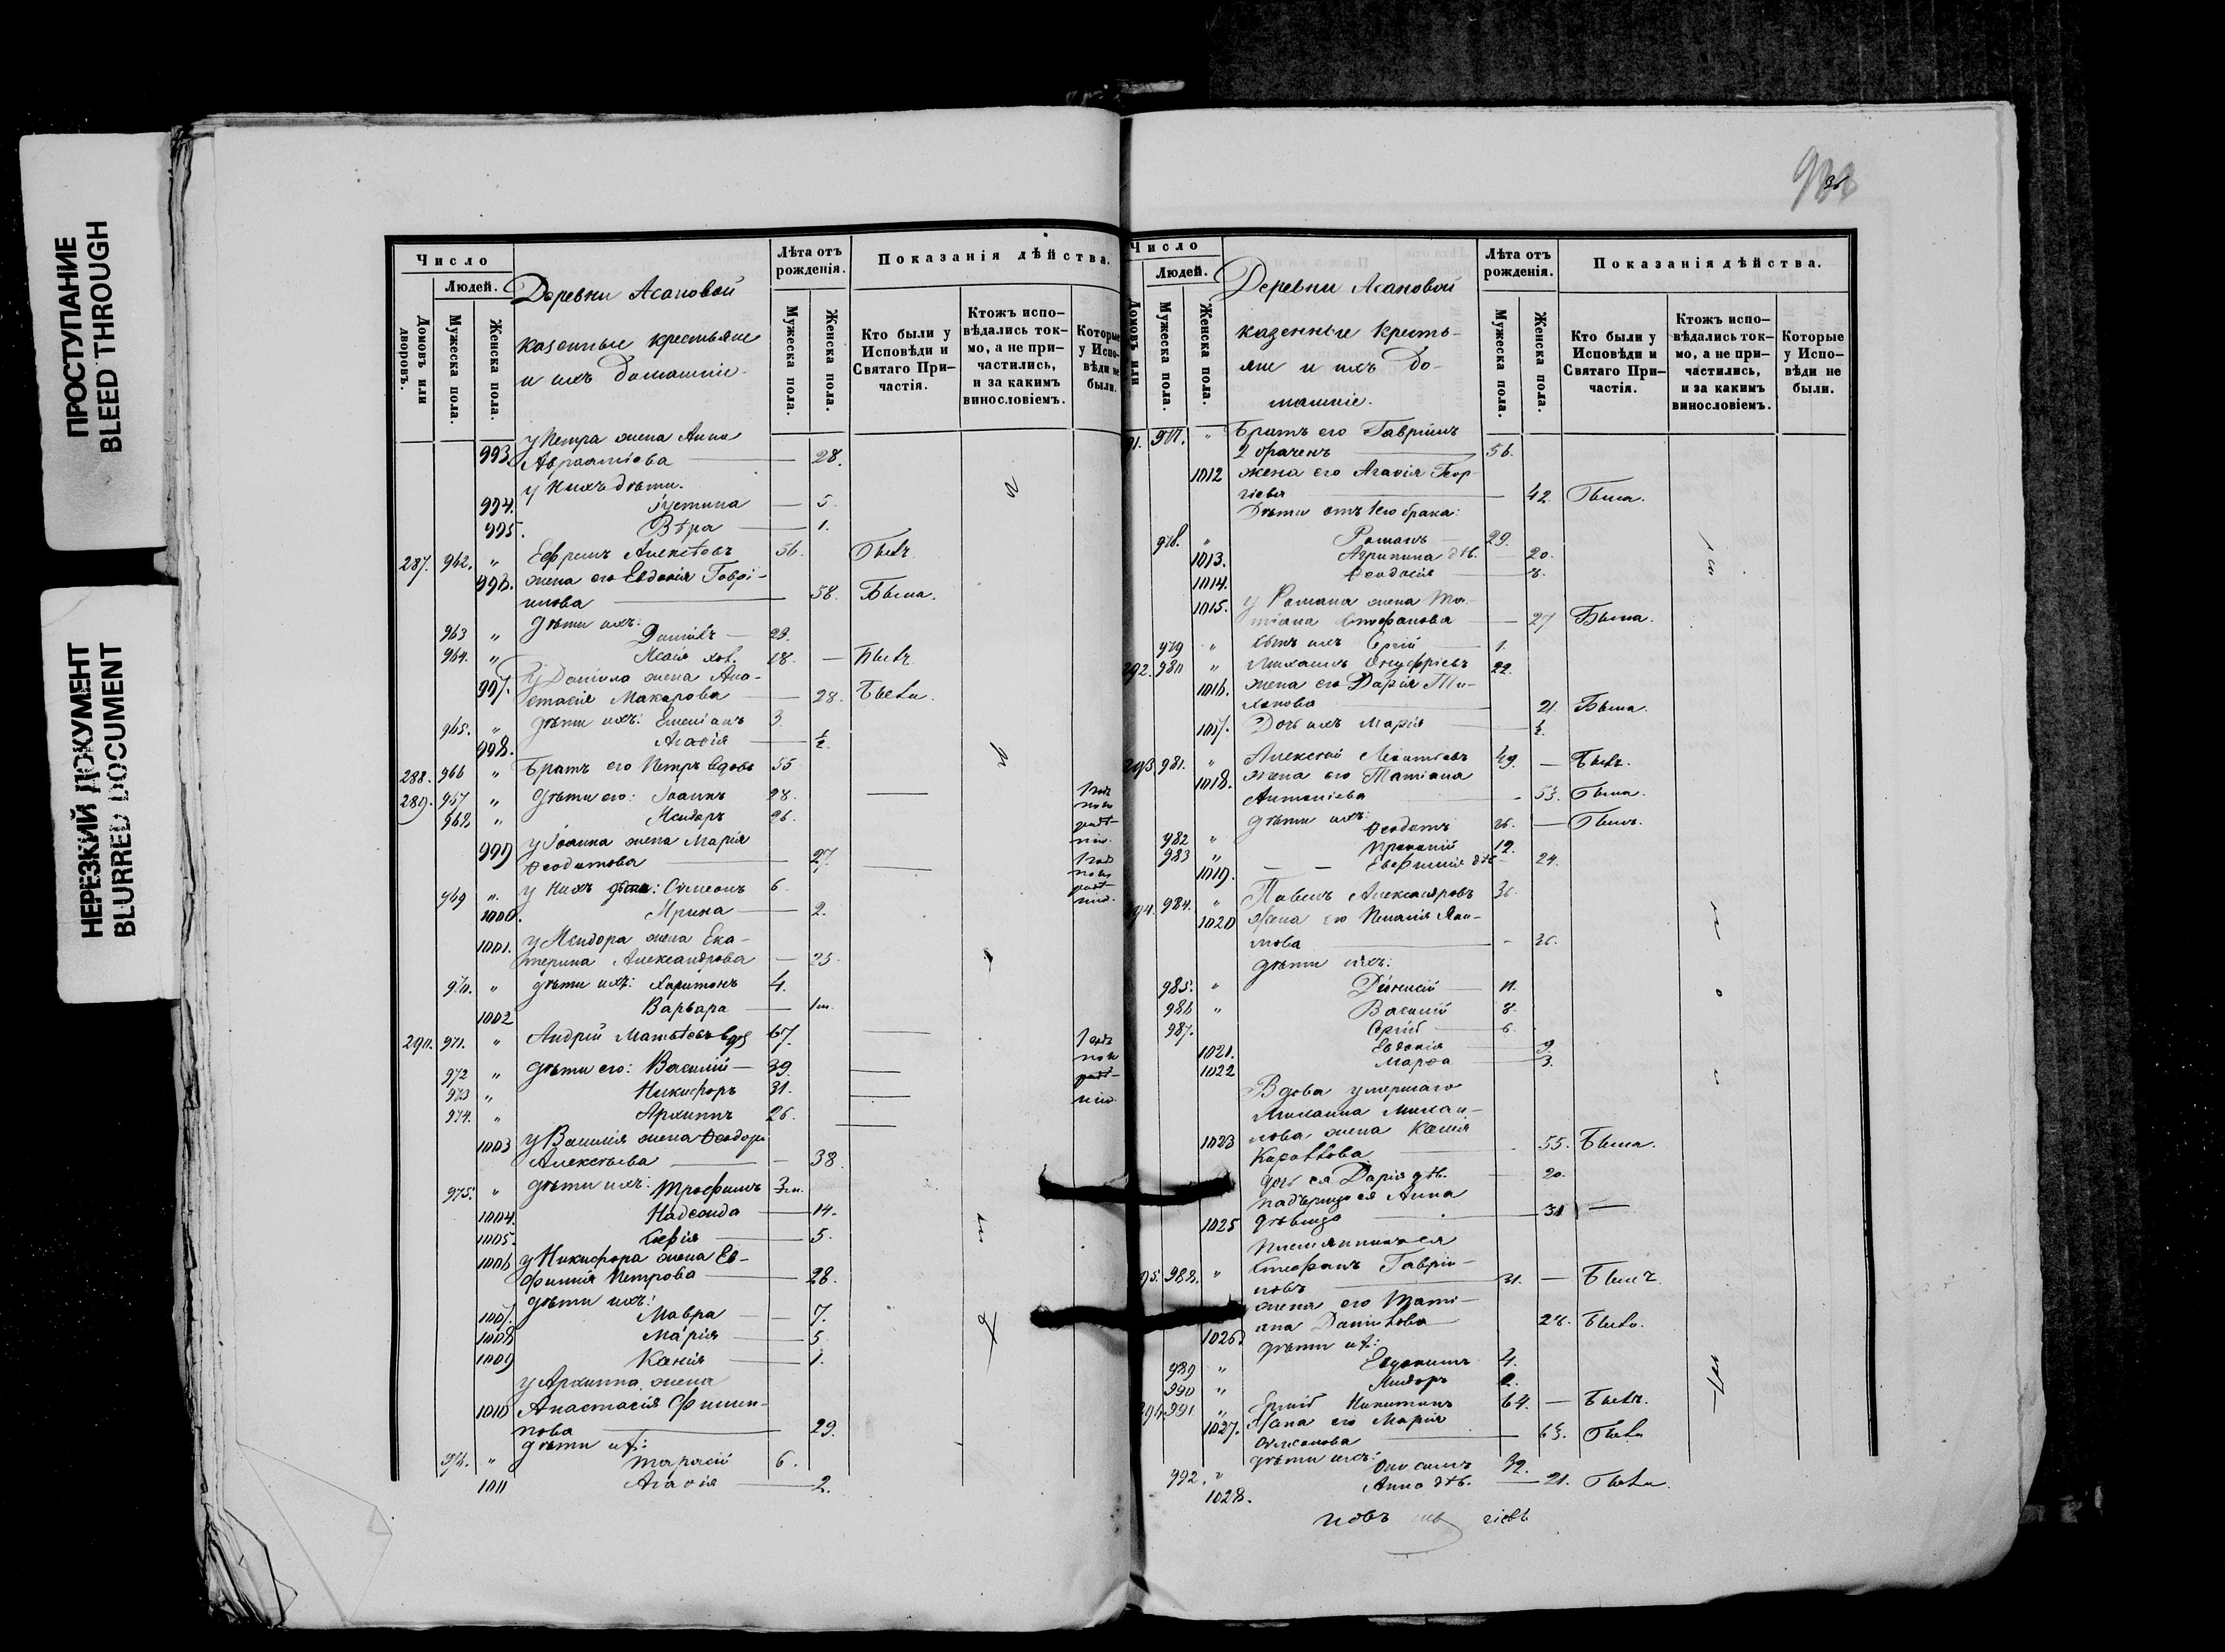 ПРОСТУПАНИЕ
BLEED THROUGH
НЕРЕЗКИЙ ДОКУМЕНТ
BLURRED DOCUMENT
Число
Людей.
Домовъ или дворовъ.
Мужеска пола.
Женска пола.
Деревни Асановой
казенные крестьяне
и ихъ домашніе.
Лѣта отъ рожденія.
Мужеска пола.
Женска пола.
Показанія дѣйства.
Кто были у Исповѣди и Святаго Причастія.
Ктожъ исповѣдались токмо, а не причастились, и за какимъ винословіемъ.
Которые у Исповѣди не были.
у Петра жена Анна
993. Авраамова — 28.
у нихъ дѣти:
994. Іустина — 5.
995. Вѣра — 1.
287. 962. " Ефремъ Алексѣевъ 56. Былъ.
996. жена его Евдокія Гаврі-
илова — 58. Была.
дѣти ихъ:
963 " Даніилъ — 29.
964. " Исаія хол. 18. — Былъ
у Даніила жена Ана-
997. стасія Макарова — 28. Была.
965. " дѣти ихъ: Емеліанъ 3.
998. Агаѳія — 1/2
288. 966 " Братъ его Петръ вдовъ 55
289. 967 " Дѣти его: Іоаннъ 28. —
968 " Исидоръ 26.
у Іоанна жена Марія
999 Ѳеодотова — 27. —
969 " у нихъ дѣти: Симеонъ 6.
1000. Ирина — 2.
1001. у Исидора жена Ека-
терина Александрова — 25.
970. " дѣти ихъ: Харитонъ 4.
1002 Варвара — 1м.
290. 971. " Андрей Матвѣевъ вдов 67. —
972 " дѣти его: Василій — 39. —
973 " Никифоръ 31. —
974. " Архиппъ 26. —
1003 у Василія жена Ѳеодора
Алексѣева — 38.
975. " дѣти ихъ: Трофимъ 3м.
1004. Надежда — 14.
1005. Софія — 5.
1006 у Никифора жена Ев-
фимія Петрова — 28.
дѣти ихъ:
1007. Мавра — 7.
1008 Марія — 5.
1009 Ксенія — 1.
у Архиппа жена
1010 Анастасія Филип-
пова — 29.
дѣти ихъ:
976. " Тарасій 6.
1011 Агаѳія — 2.
Число
Людей.
Домовъ или
Мужеска пола.
Женска пола.
Деревни Асановой
казенные кресть-
яне и ихъ до-
машніе.
Лѣта отъ рожденія.
Мужеска пола.
Женска пола.
Показанія дѣйства.
Кто были у Исповѣди и Святаго Причастія.
Ктожъ исповѣдались токмо, а не причастились, и за какимъ винословіемъ.
Которые у Исповѣди не были.
91. 977. " Братъ его Гавріилъ
2 браченъ — 56.
1012 жена его Агаѳія Геор-
гіева — 42. Была.
Дѣти отъ 1го брака:
978. " Романъ — 29.
1013. Агрипина дѣв. — 20.
1014. Ѳеодосія — 8.
1015. у Романа жена Та-
тіана Стефанова — 27 Была.
979 " сынъ ихъ Сергій — 1.
292. 980 " Михаилъ Онуфріевъ 22.
1016. жена его Дарія Ти-
хонова — 21. Была.
1017. Дочь ихъ Марія — 1/2.
293 981. " Алексѣй Леонтьевъ 49. — Былъ.
1018. жена его Татіана
Антоніева — 53. Была.
дѣти ихъ:
982 " Ѳеодотъ 26. — Былъ.
983 " Прокопій 12.
1019. Евфимія дѣв 24.
94. 984. " Павелъ Александровъ 36.
1020 жена его Пелагія
— 36.
дѣти ихъ:
985. " Діонисій — 11.
986 " Василій 8.
987. Сергій — 6.
1021. Евдокія — 9.
1022 Марѳа — 3.
Вдова умершаго
Михаила Михаи-
1023 лова жена Ксенія
— 55. Была.
дочь ея Дарія дѣв. — 20.
падчерица ея Анна
1025 дѣвица — 31 —
племянникъ ея
95. 988. " Стефанъ Гаврии-
ловъ — 31. — Былъ
жена его Тати-
1026. ана Даніилова — 28. Была.
дѣти ихъ:
989 " Евдокимъ 4.
990 " Исидоръ 2.
991. " Сергій Никитинъ 64. — Былъ.
1027. Жена его Марія
Симеонова — 63. Была
дѣти ихъ:
992. " 32.
1028. Анна дѣв. — 21. Была.